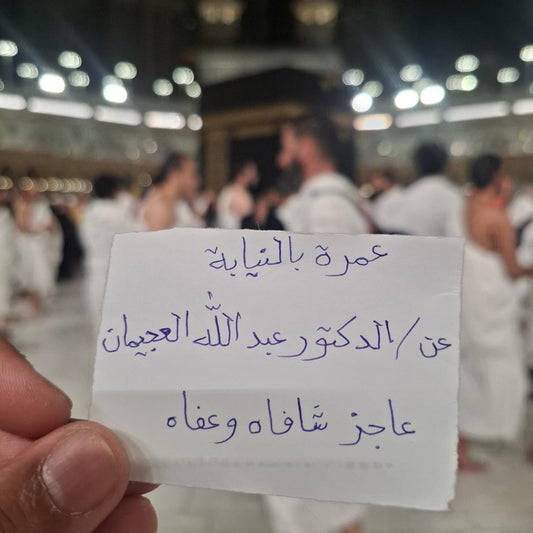 عمرة بالنيابة
عن/الدكتور عبد الله العجيمان
عاجز شافاه وعفاه